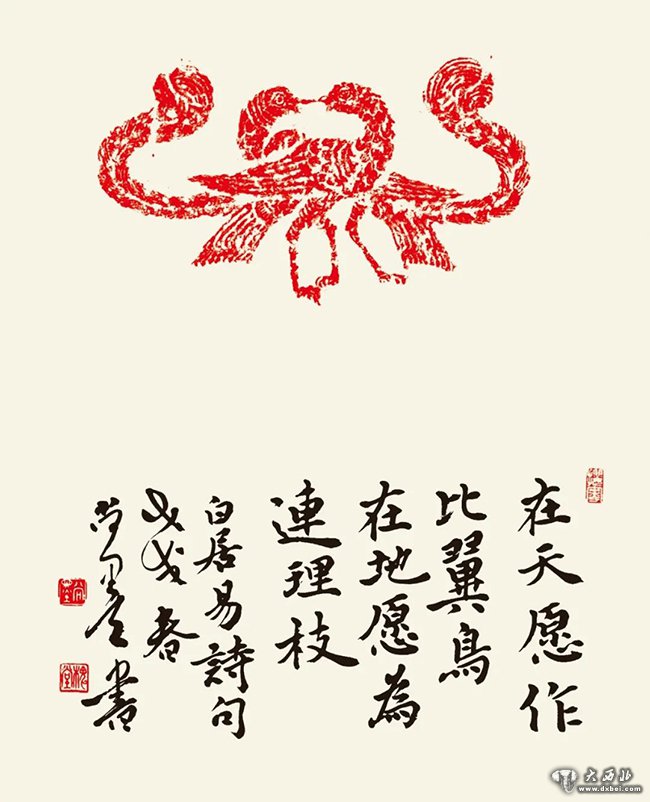 在天愿作
比翼鳥
在地愿為
連理枝
白居易詩句
戊戌春
書
大西北
www.dxbei.com